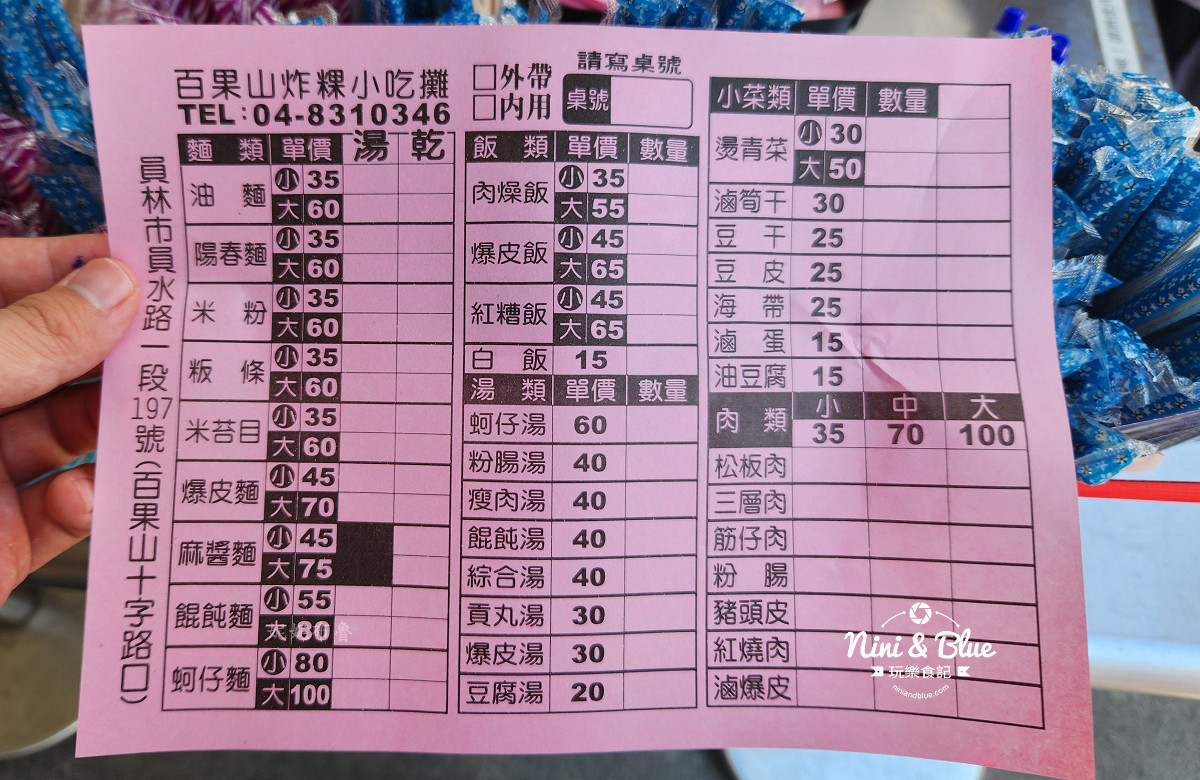 百果山炸粿小吃攤
TEL:04-8310346
員林市員水路一段197號(百果山十字路口)
□外帶
□內用
請寫桌號
桌號
麵類 單價 湯 乾
油麵 小 35
大 60
陽春麵 小 35
大 60
米粉 小 35
大 60
粄條 小 35
大 60
米苔目 小 35
大 60
爆皮麵 小 45
大 70
麻醬麵 小 45
大 75
餛飩麵 小 55
大 80
蚵仔麵 小 80
大 100
飯類 單價 數量
肉燥飯 小 35
大 55
爆皮飯 小 45
大 65
紅糟飯 小 45
大 65
白飯 15
湯類 單價 數量
蚵仔湯 60
粉腸湯 40
瘦肉湯 40
餛飩湯 40
綜合湯 40
貢丸湯 30
爆皮湯 30
豆腐湯 20
小菜類 單價 數量
燙青菜 小 30
大 50
滷筍干 30
豆干 25
豆皮 25
海帶 25
滷蛋 15
油豆腐 15
肉類 小 中 大
35 70 100
松板肉
三層肉
筋仔肉
粉腸
豬頭皮
紅燒肉
滷爆皮
Nini & Blue
玩樂食記
niniandblue.com